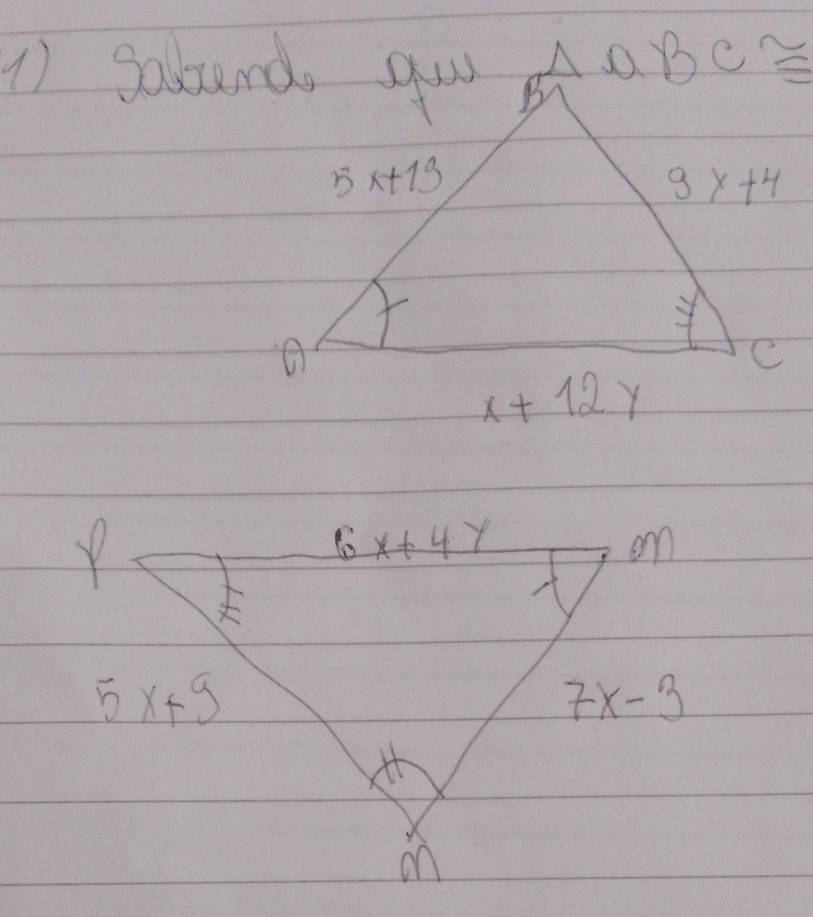 1) Sabendo que Δ A B C ≅
B
5x+19
9y+4
A
C
x+12y
P
6x+4y
M
5x+9
7x-3
M